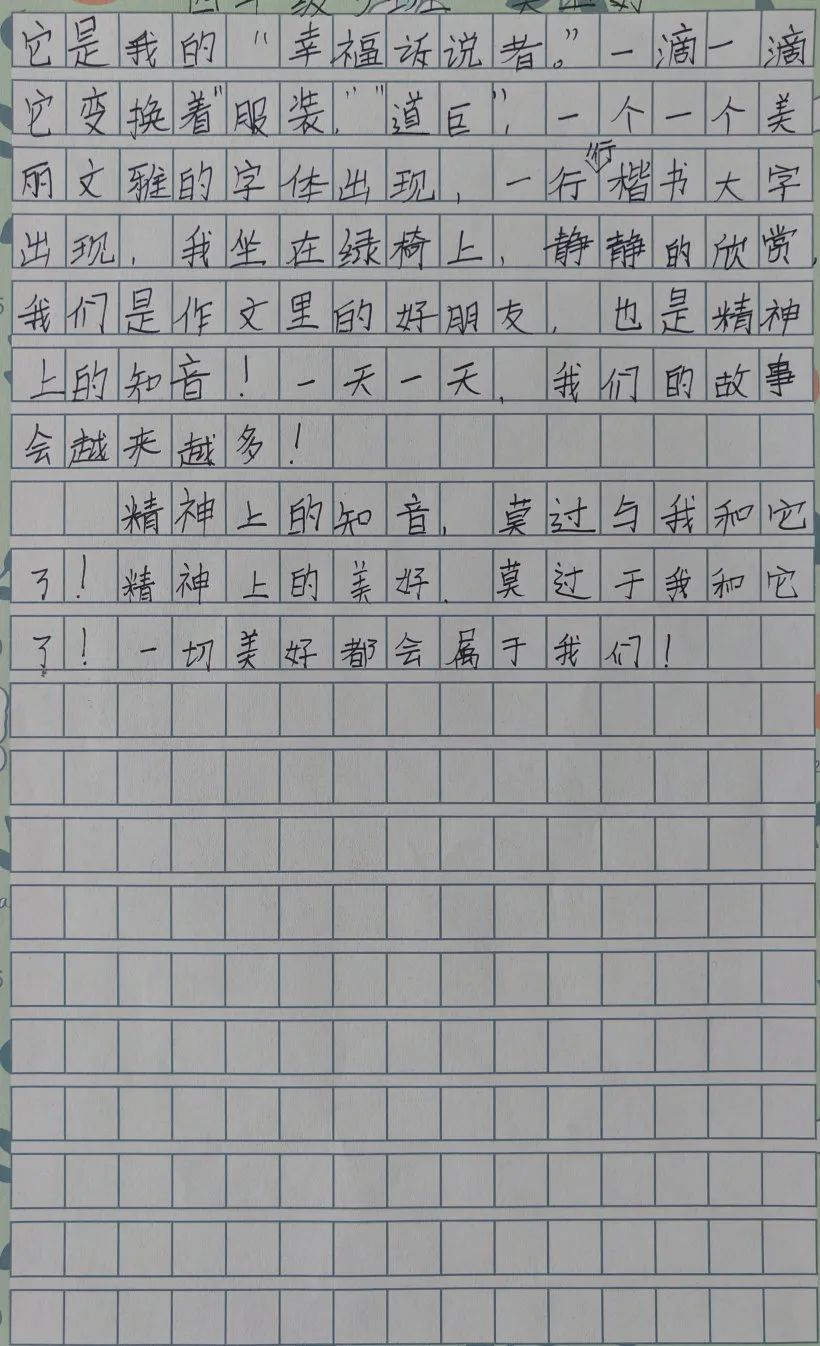 它是我的“幸福诉说者。”一滴一滴
它变换着“服装，”“道巨”，一个一个美
丽文雅的字体出现，一行行楷书大字
出现，我坐在绿椅上，静静的欣赏，
我们是作文里的好朋友，也是精神
上的知音！一天一天，我们的故事
会越来越多！
精神上的知音，莫过与我和它
了！精神上的美好，莫过于我和它
了！一切美好都会属于我们！